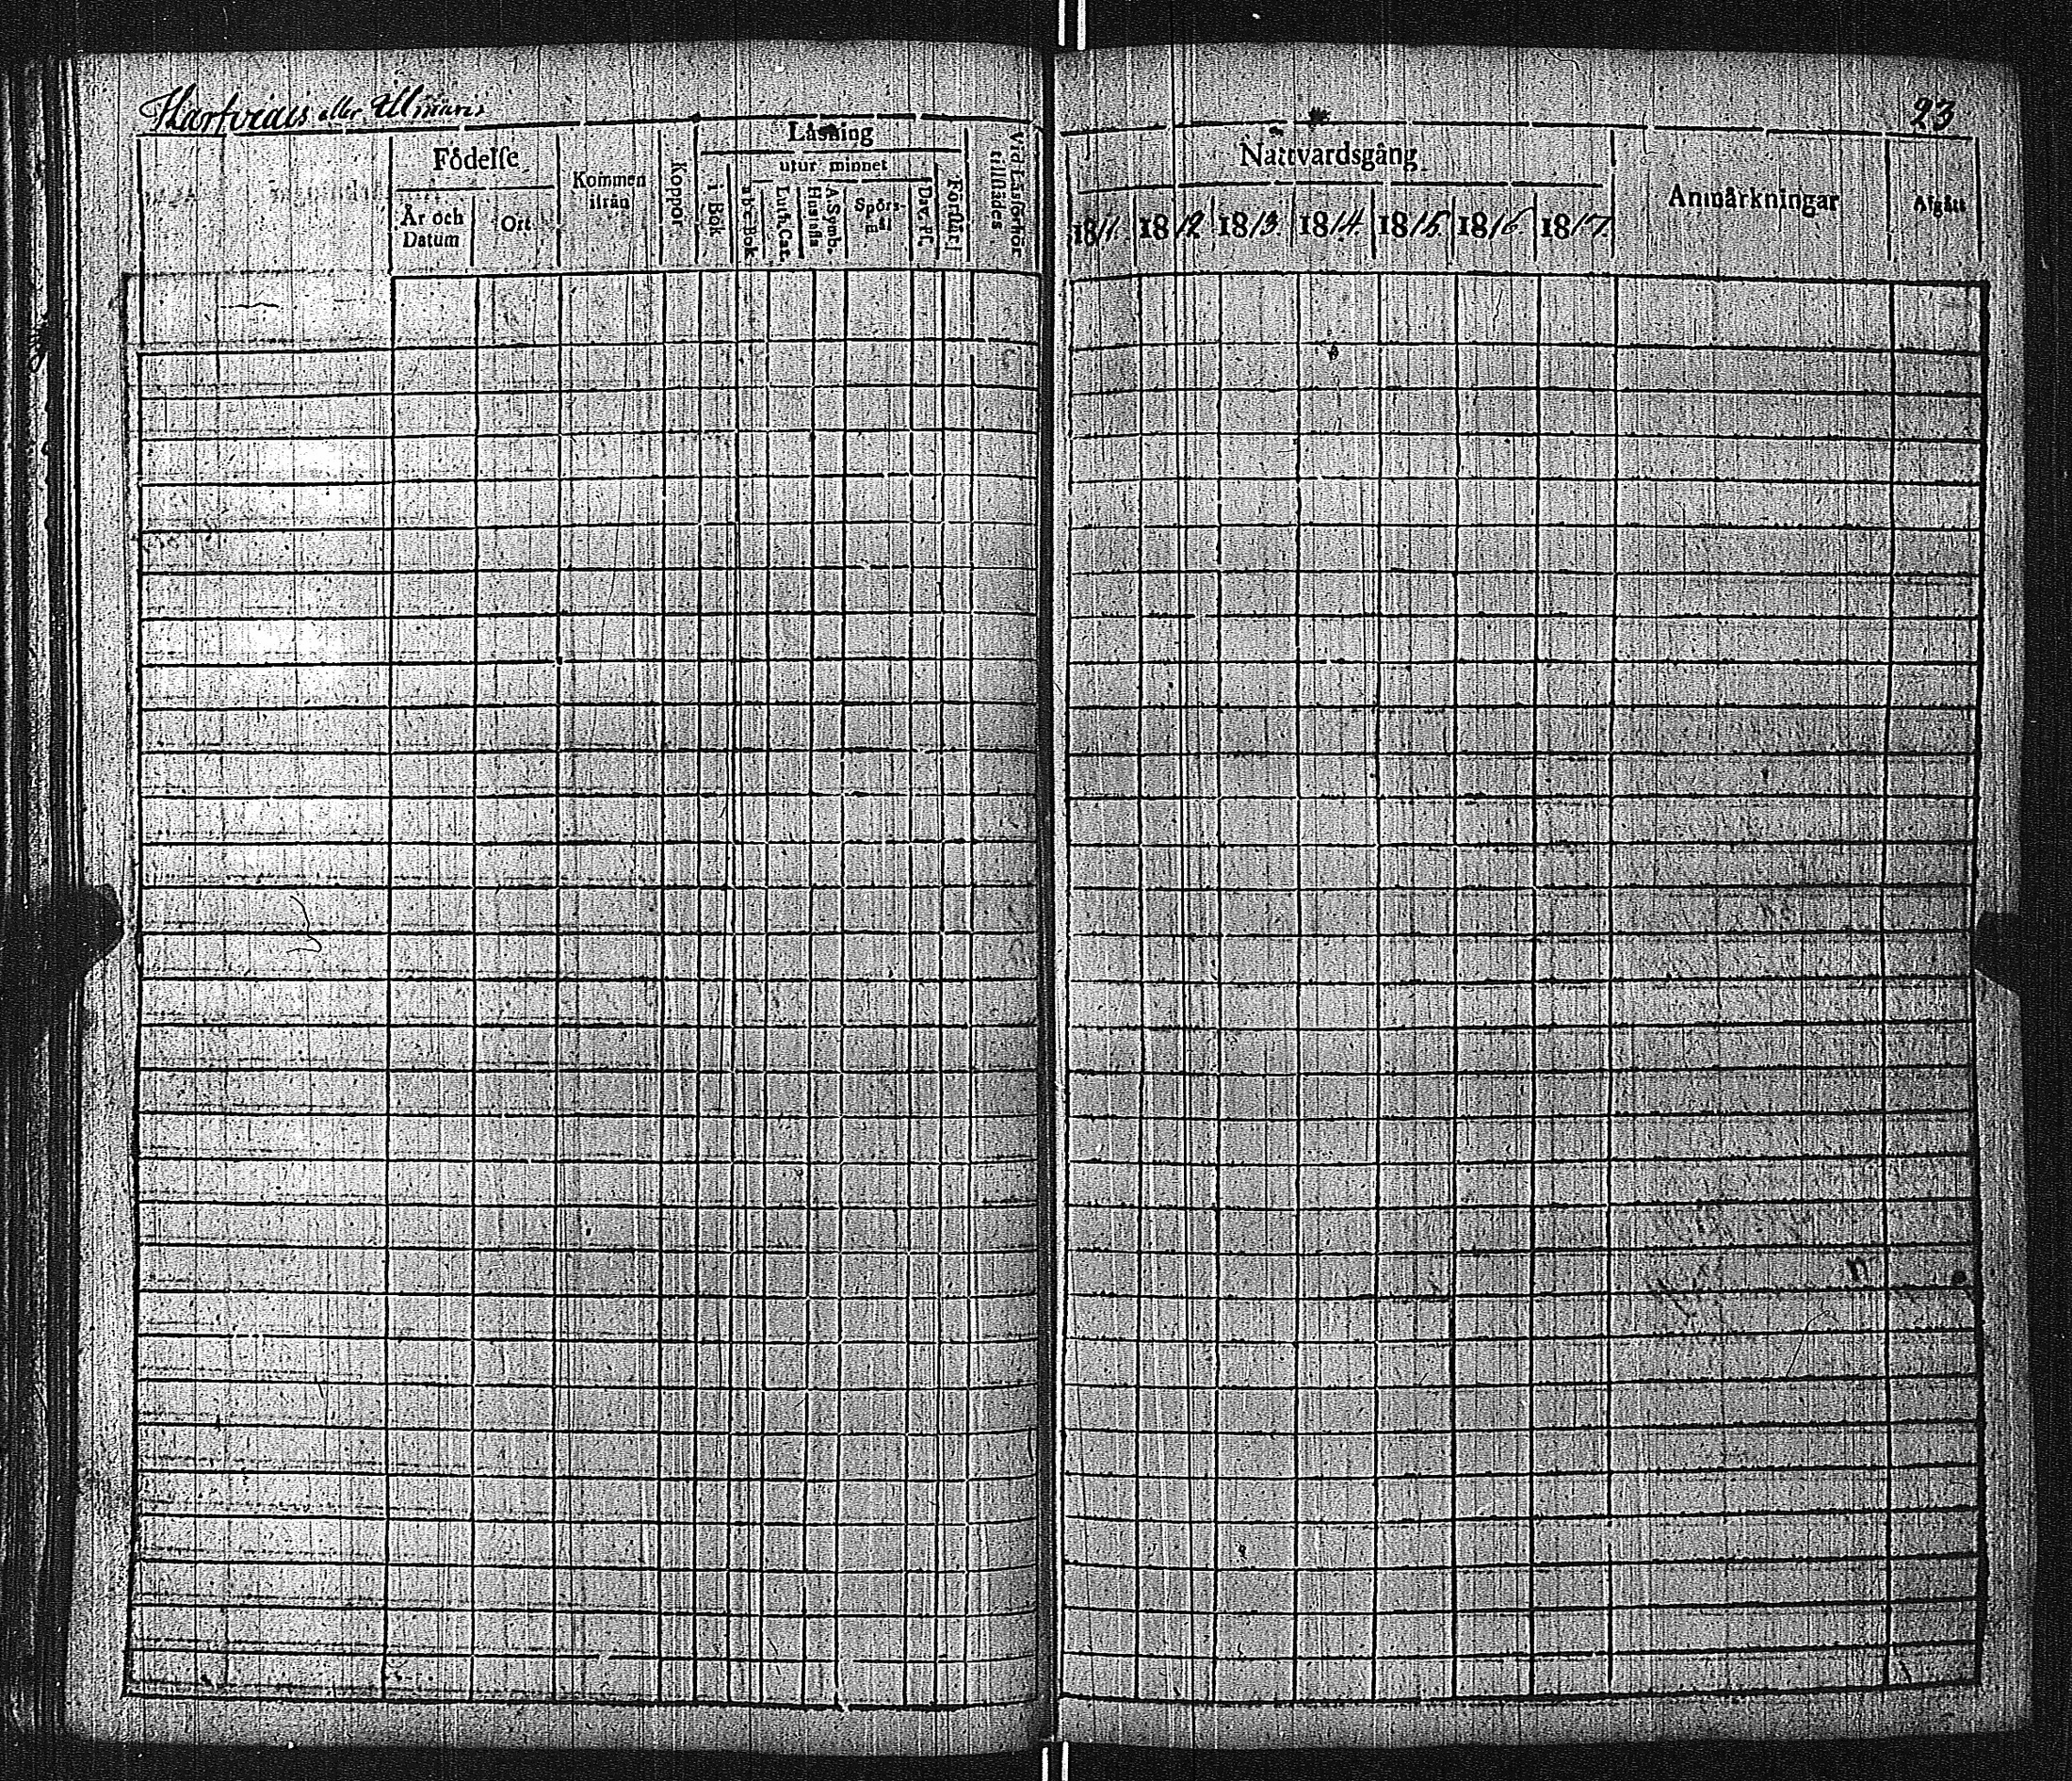 eller
23
Födelse
År och Datum
Ort
Kommen ifrån
Koppor
Läsning
i Bok
utur minnet
a b c Bok
Luth. Cat.
Hustafla
A. Symb.
Spörsmål
Dav. Ps.
Förstår
Vid Läsförhör tillstädes
Nattvardsgång
1811. 1812 1813. 1814. 1815 1816 1817.
Anmärkningar
Afgått